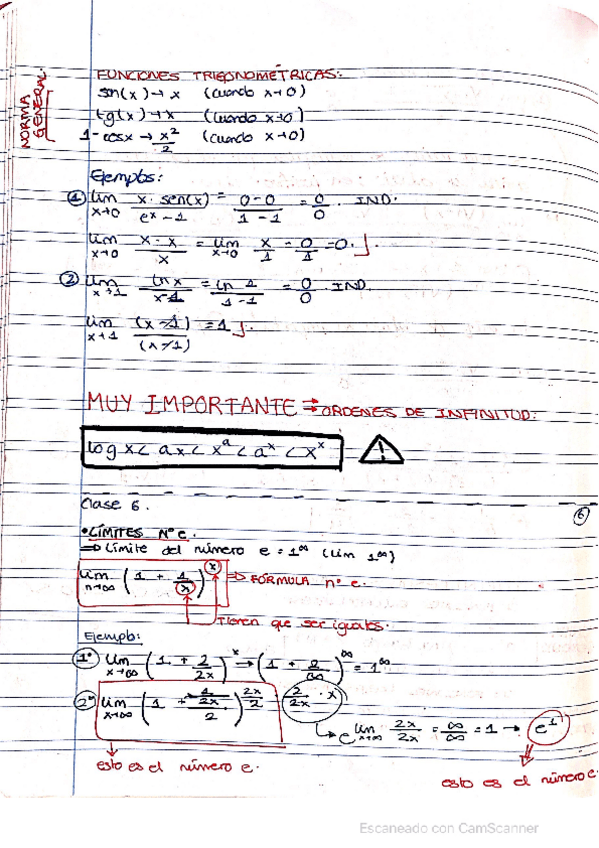 NORMA GENERAL
FUNCIONES TRIGONOMÉTRICAS:
sen(x) → x (cuando x→0)
tg(x) → x (cuando x→0)
1-cosx → x²/2 (cuando x→0)
Ejemplos:
① lim x→0 x·sen(x) / e^x - 1 = 0-0 / 1-1 = 0/0. IND.
lim x→0 x·x / x = lim x→0 x/1 = 0/1 = 0.
② lim x→1 ln x / x-1 = ln 1 / 1-1 = 0/0. IND
lim x→1 (x-1) / (x-1) = 1
MUY IMPORTANTE → ORDENES DE INFINITUD:
log x < ax < x^a < a^x < x^x
!
Clase 6.
6
•LÍMITES Nº e.
⇒ Límite del número e = 1^∞ (lim 1^∞)
lim n→∞ (1 + 1/x)^x ⇒ FÓRMULA nº e.
Tienen que ser iguales.
Ejemplo:
1º lim x→∞ (1 + 2/2x)^x → (1 + 2/∞)^∞ = 1^∞
2º lim x→∞ (1 + 1/(2x/2))^(2x/2) · 2/2x · x
→ e^lim x→∞ 2x/2x = ∞/∞ = 1 → e^1
esto es el número e.
esto es el número e.
Escaneado con CamScanner